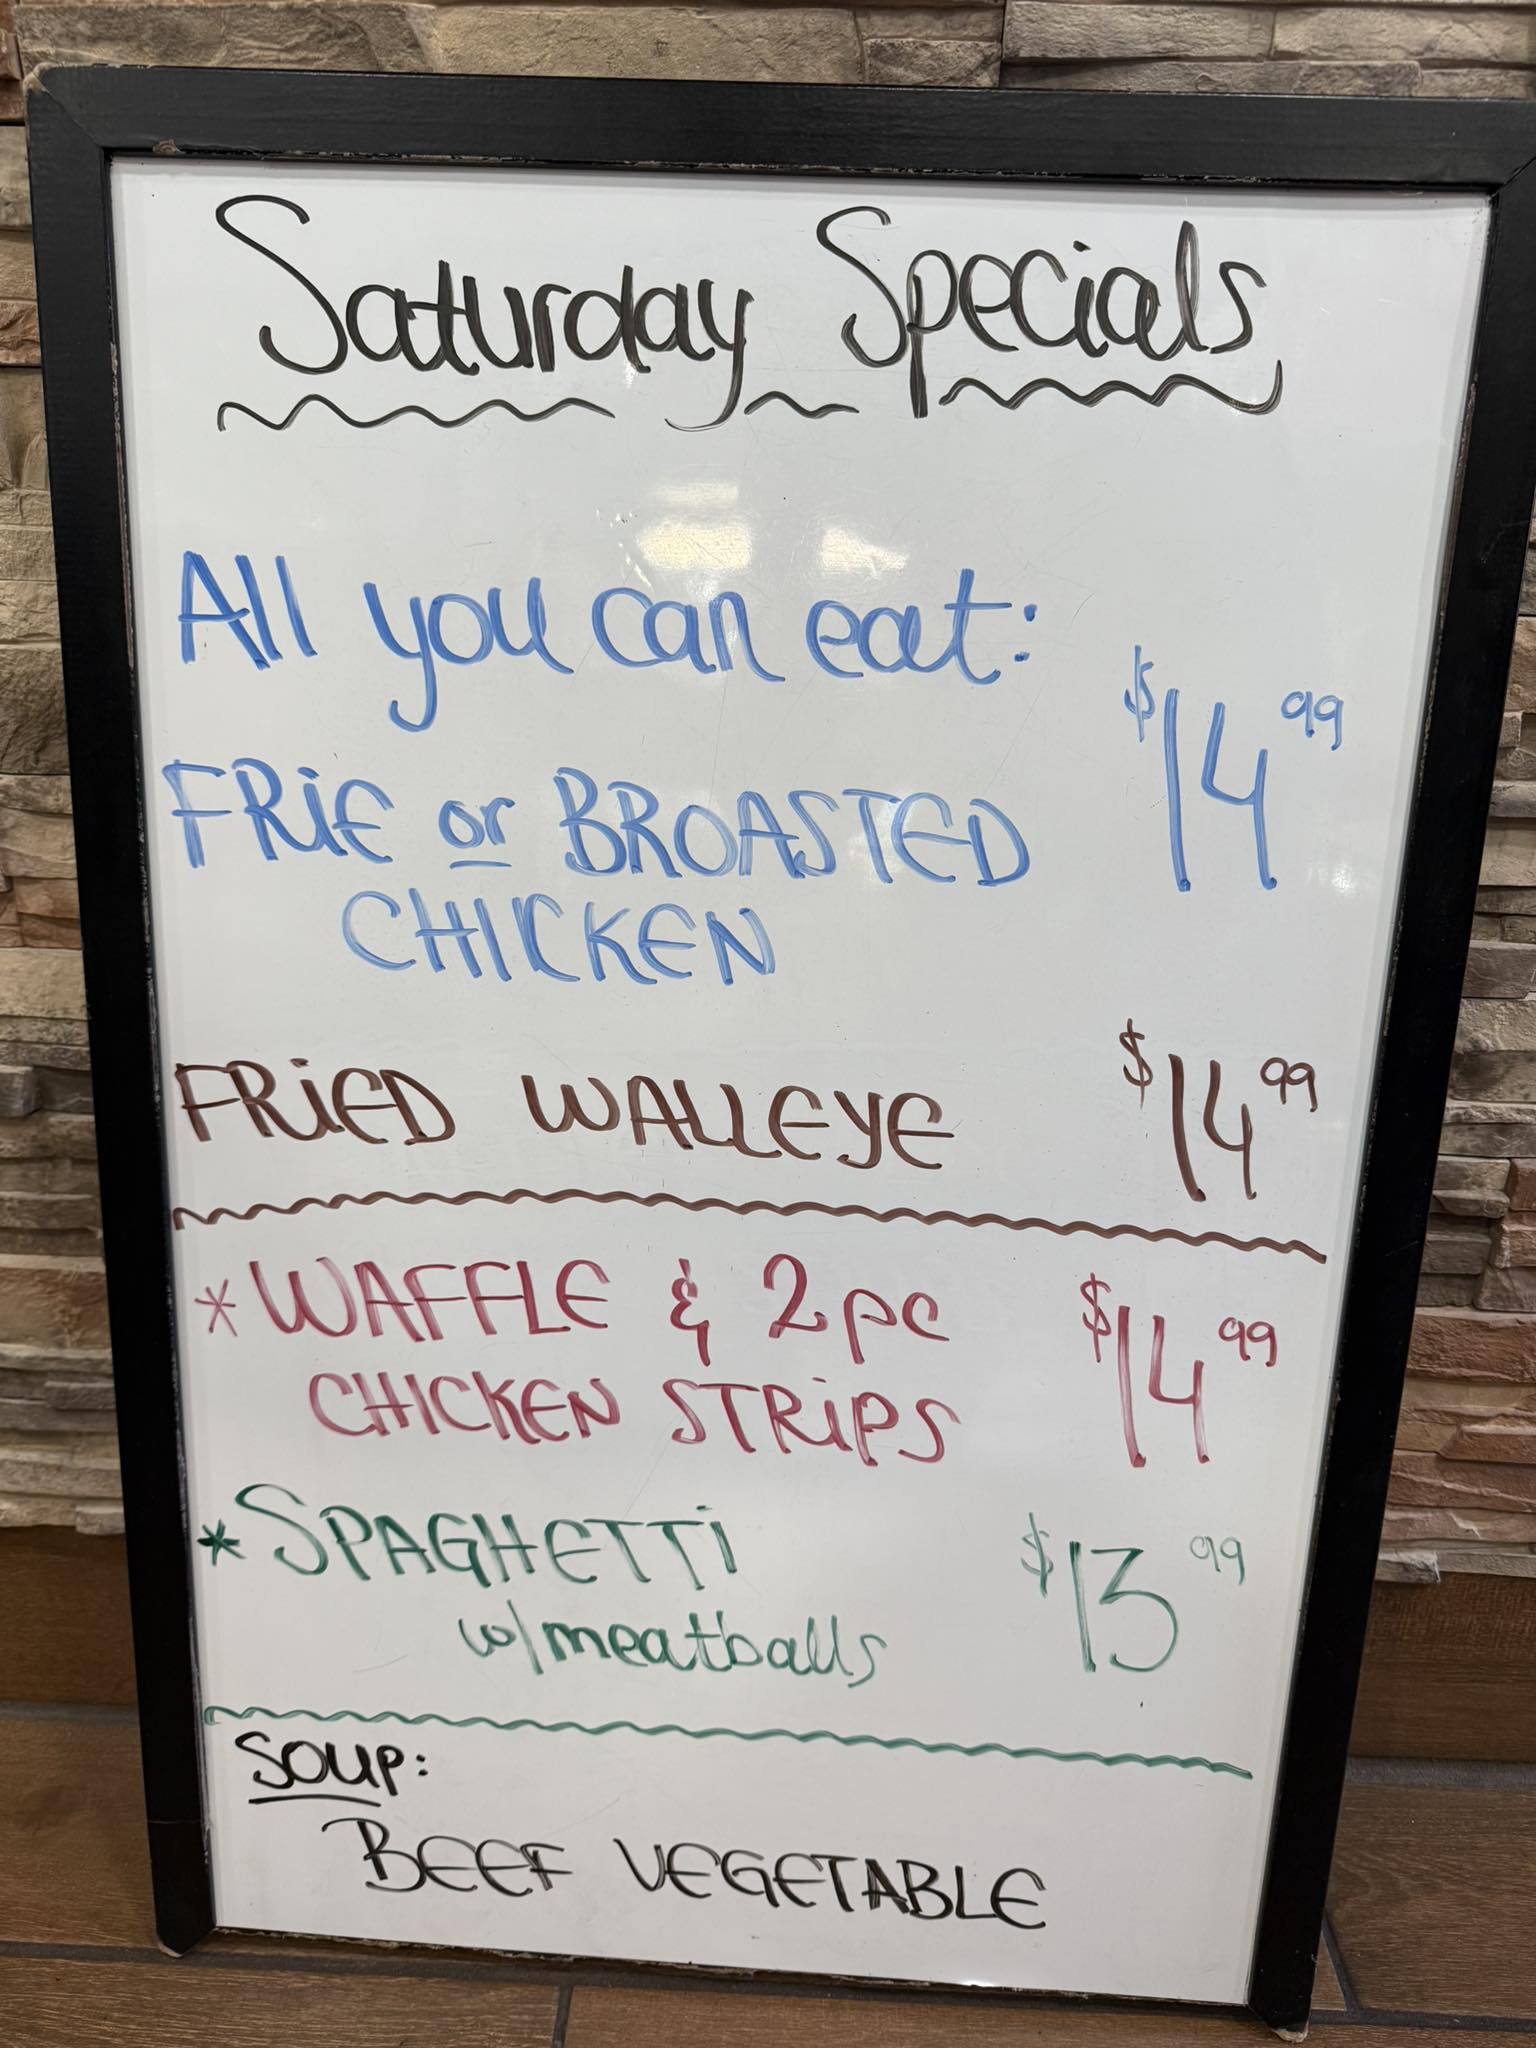 Saturday Specials
All you can eat:
FRiE or BROASTED
CHICKEN
$14.99
FRiED WALLEYE $14.99
* WAFFLE & 2 pc
CHICKEN STRiPS
$14.99
* SPAGHETTi
w/meatballs
$13.99
SOUP:
BEEF VEGETABLE